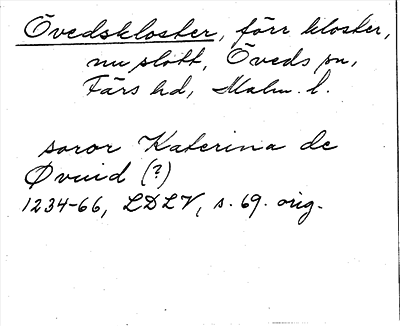 Övedskloster, förr kloster,
nu slott, Öveds sn,
Färs hd, Malm. l.
soror Katerina de
Øvuid (?)
1234-66, LDLV, s. 69. orig.